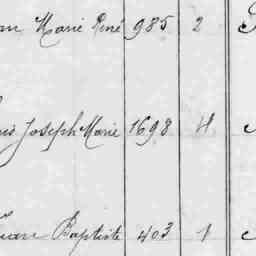 Marie René 985 2
Joseph Marie 1698 4
Jean Baptiste 403 1